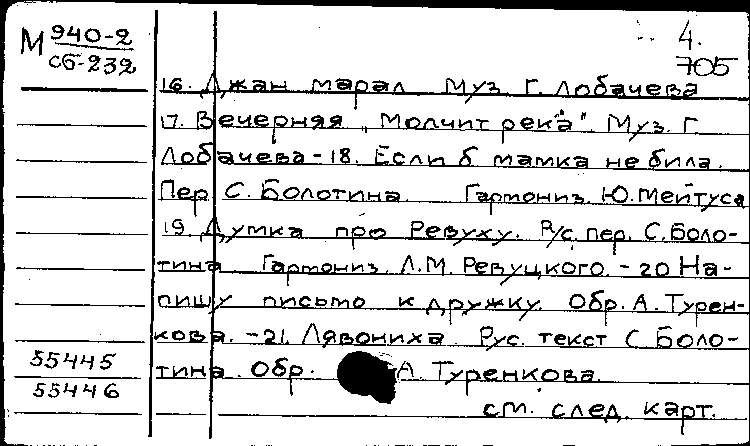 М 940-2
сб-232
4.
705
16. Джан марал. Муз. Г. Лобачева
17. Вечерняя „Молчит река". Муз. Г.
Лобачева - 18. Если б мамка не била.
Пер. С. Болотина. Гармониз. Ю. Мейтуса
19. Думка про Ревуху. Рус. пер. С. Боло-
тина Гармониз. Л.М. Ревуцкого. - 20 На-
пишу письмо к дружку. Обр. А. Турен-
кова. - 21. Лявониха Рус. текст С. Боло-
тина. Обр. А. Туренкова.
см. след. карт.
55445
55446